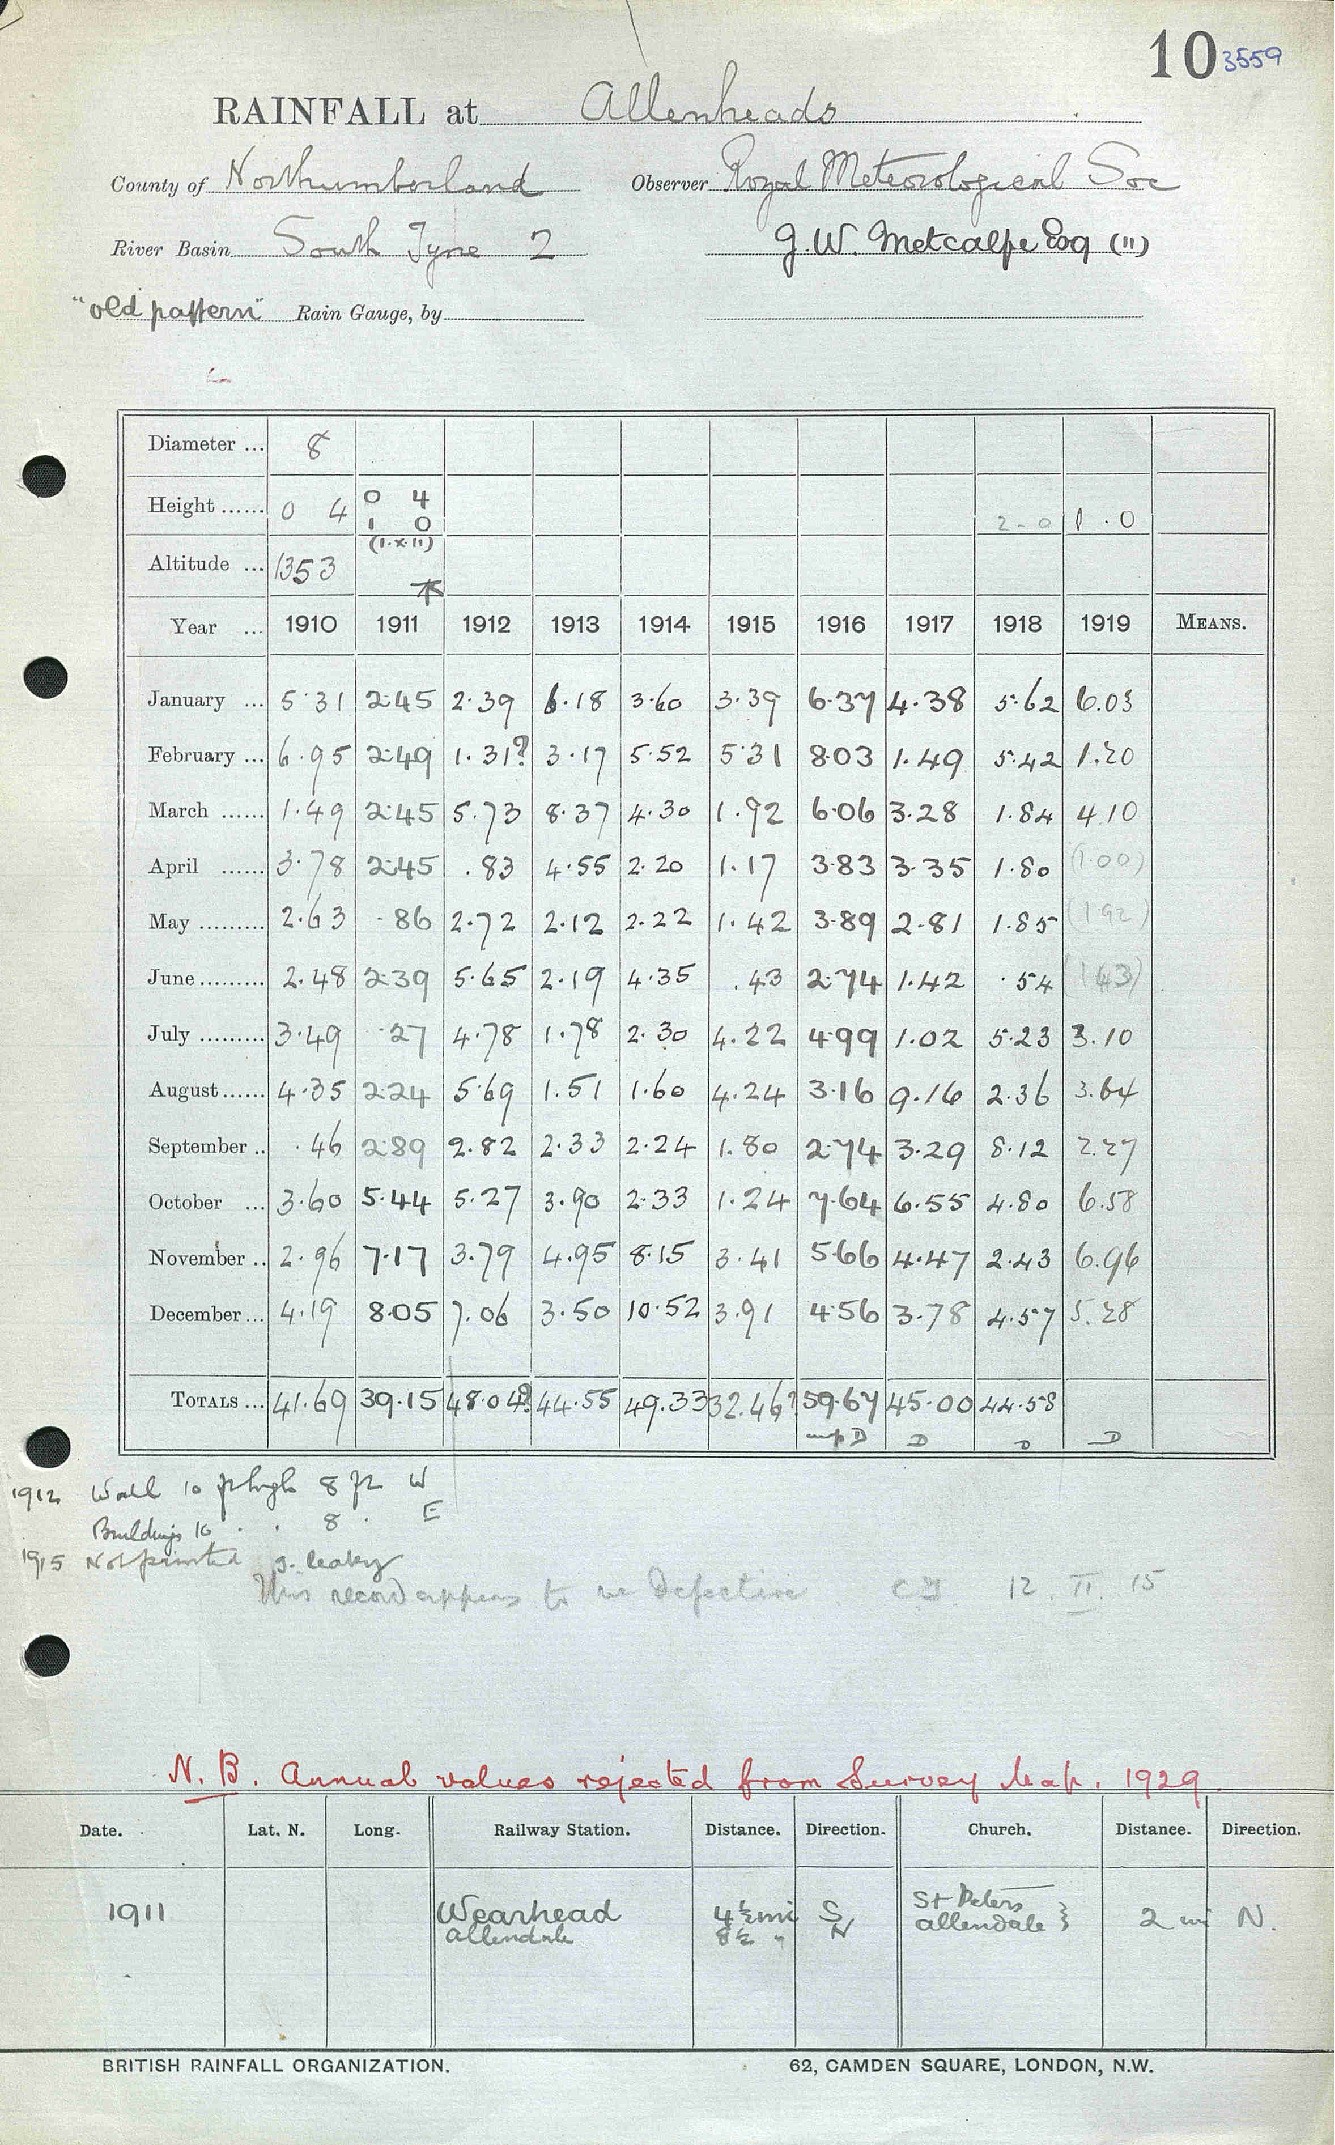 10 3559
RAINFALL at Allenheads
County of Northumberland Observer Royal Meteorological Soc
River Basin South Tyne 2 G. W. Metcalfe Esq (11)
"old pattern" Rain Gauge, by
Diameter ... 8
Height ...... 0 4 0 4
1 0 2-0 1.0
(1.x.11)
Altitude ... 1353
Year ... 1910 1911 1912 1913 1914 1915 1916 1917 1918 1919 MEANS.
January ... 5.31 2.45 2.39 6.18 3.60 3.39 6.37 4.38 5.62 6.03
February ... 6.95 2.49 1.31? 3.17 5.52 5.31 8.03 1.49 5.42 1.20
March ...... 1.49 2.45 5.73 8.37 4.30 1.92 6.06 3.28 1.84 4.10
April ...... 3.78 2.45 .83 4.55 2.20 1.17 3.83 3.35 1.80 (1.00)
May ......... 2.63 .86 2.72 2.12 2.22 1.42 3.89 2.81 1.85 (1.92)
June ......... 2.48 2.39 5.65 2.19 4.35 .43 2.74 1.42 .54 (1.43)
July ......... 3.49 .27 4.78 1.78 2.30 4.22 4.99 1.02 5.23 3.10
August...... 4.35 2.24 5.69 1.51 1.60 4.24 3.16 9.16 2.36 3.64
September .. .46 2.89 2.82 2.33 2.24 1.80 2.74 3.29 8.12 2.27
October ... 3.60 5.44 5.27 3.90 2.33 1.24 7.64 6.55 4.80 6.58
November .. 2.96 7.17 3.79 4.95 8.15 3.41 5.66 4.47 2.43 6.96
December ... 4.19 8.05 7.06 3.50 10.52 3.91 4.56 3.78 4.57 5.28
TOTALS ... 41.69 39.15 48.04? 44.55 49.33 32.46? 59.67 45.00 44.58
D D D D
1912 Wall 10 ft high 8 ft W
Buildings 16 . . 8 . E
1915 Not printed g. leaky
This record appears to be Defective 12 II 15
N.B. Annual values rejected from Survey Map. 1929
Date. Lat. N. Long. Railway Station. Distance. Direction. Church. Distance. Direction.
1911 Wearhead 4½ mi S St Peters
Allendale 8½ " N Allendale } 2 mi N.
BRITISH RAINFALL ORGANIZATION. 62, CAMDEN SQUARE, LONDON, N.W.